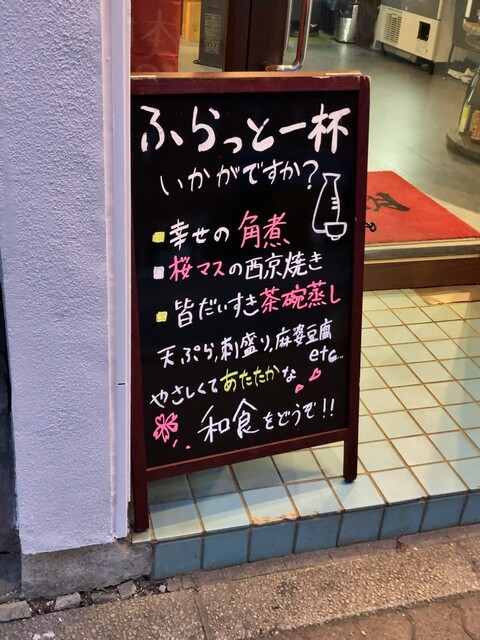 ふらっと一杯
いかがですか?
幸せの角煮
桜マスの西京焼き
皆だいすき茶碗蒸し
天ぷら,刺盛り,麻婆豆腐
etc...
やさしくてあたたかな
和食をどうぞ!!